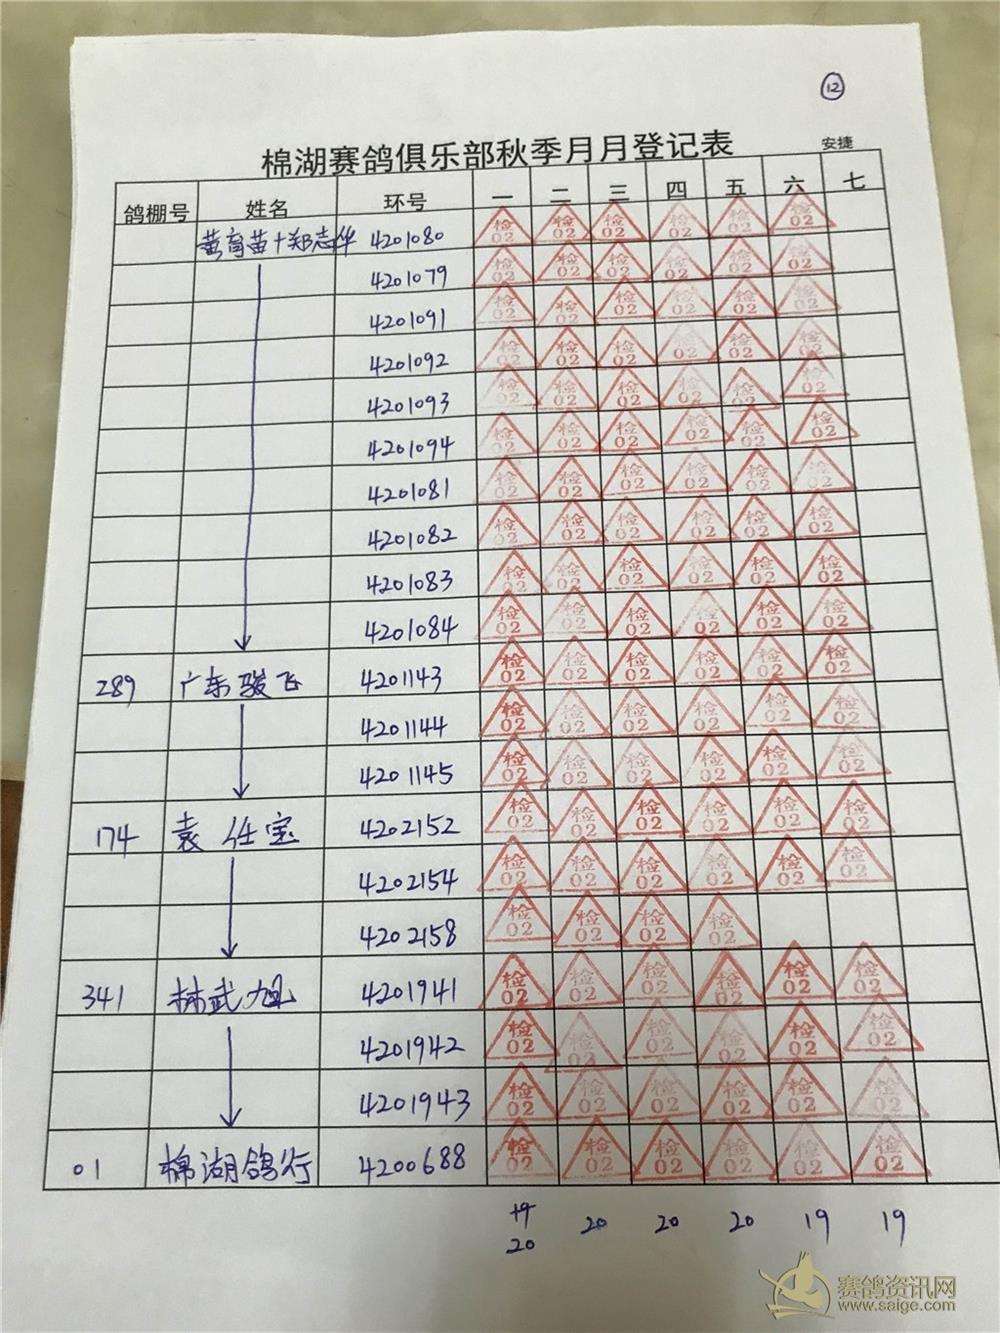 12
棉湖赛鸽俱乐部秋季月月登记表 安捷
鸽棚号 姓名 环号 一 二 三 四 五 六 七
黄育苗+郑志华 4201080 检02 检02 检02 检02 检02 检02
4201079 检02 检02 检02 检02 检02 检02
4201091 检02 检02 检02 检02 检02 检02
4201092 检02 检02 检02 检02 检02 检02
4201093 检02 检02 检02 检02 检02 检02
4201094 检02 检02 检02 检02 检02 检02
4201081 检02 检02 检02 检02 检02 检02
4201082 检02 检02 检02 检02 检02 检02
4201083 检02 检02 检02 检02 检02 检02
4201084 检02 检02 检02 检02 检02 检02
289 广东骏飞 4201143 检02 检02 检02 检02 检02 检02
4201144 检02 检02 检02 检02 检02 检02
4201145 检02 检02 检02 检02 检02 检02
174 袁仕宝 4202152 检02 检02 检02 检02 检02 检02
4202154 检02 检02 检02 检02 检02 检02
4202158 检02 检02 检02 检02
341 林武旭 4201941 检02 检02 检02 检02 检02 检02
4201942 检02 检02 检02 检02 检02 检02
4201943 检02 检02 检02 检02 检02 检02
01 棉湖鸽行 4200688 检02 检02 检02 检02 检02 检02
19 20 20 20 19 19
20
赛鸽资讯网
www.saige.com